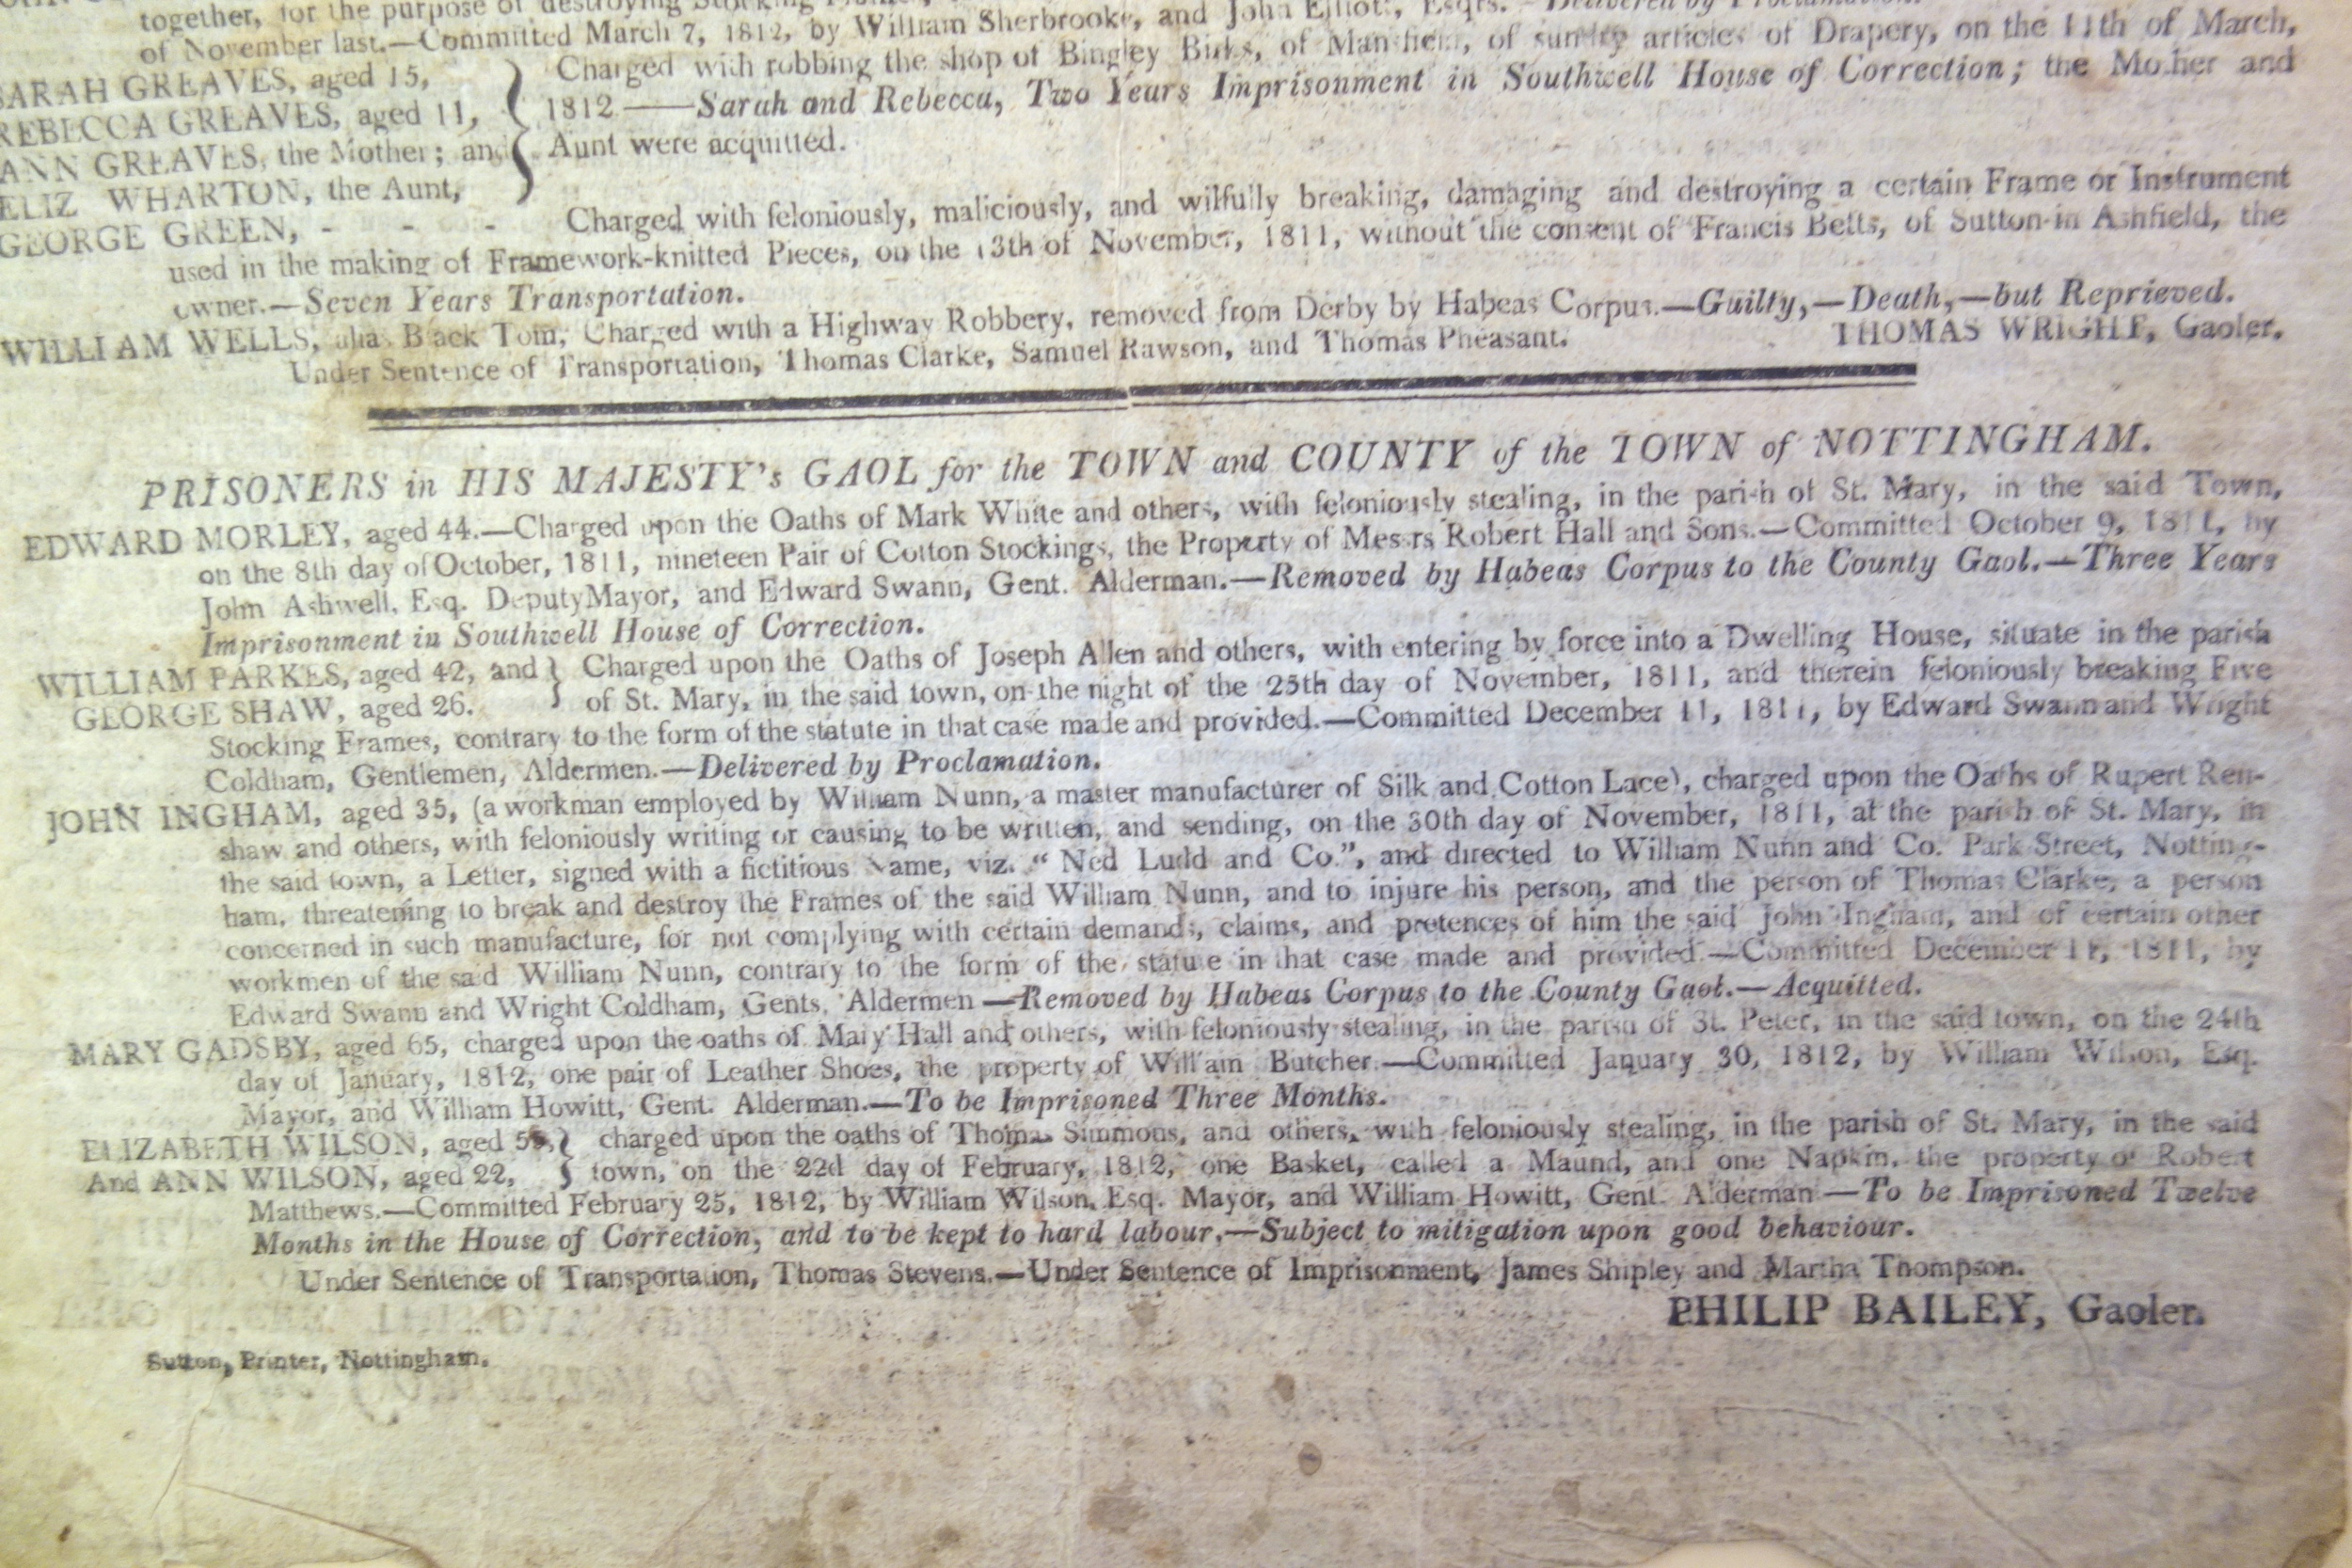 together, for the purpose of destroying Stocking
of November last.—Committed March 7, 1812, by William Sherbrooke, and John Elliott, Esqrs.—Delivered by Proclamation.
SARAH GREAVES, aged 15,
REBECCA GREAVES, aged 11,
ANN GREAVES, the Mother; and
ELIZ WHARTON, the Aunt,
Charged with robbing the shop of Bingley Birks, of Mansfield, of sundry articles of Drapery, on the 11th of March,
1812 ——Sarah and Rebecca, Two Years Imprisonment in Southwell House of Correction; the Mother and
Aunt were acquitted.
GEORGE GREEN, - - - Charged with feloniously, maliciously, and wilfully breaking, damaging and destroying a certain Frame or Instrument
used in the making of Framework-knitted Pieces, on the 13th of November, 1811, without the consent of Francis Betts, of Sutton-in Ashfield, the
owner.—Seven Years Transportation.
WILLIAM WELLS, alias Black Tom, Charged with a Highway Robbery, removed from Derby by Habeas Corpus.—Guilty,—Death,—but Reprieved.
Under Sentence of Transportation, Thomas Clarke, Samuel Rawson, and Thomas Pheasant. THOMAS WRIGHT, Gaoler.
PRISONERS in HIS MAJESTY's GAOL for the TOWN and COUNTY of the TOWN of NOTTINGHAM.
EDWARD MORLEY, aged 44.—Charged upon the Oaths of Mark White and others, with feloniously stealing, in the parish of St. Mary, in the said Town,
on the 8th day of October, 1811, nineteen Pair of Cotton Stockings, the Property of Messrs Robert Hall and Sons.—Committed October 9, 1811, by
John Ashwell, Esq. Deputy Mayor, and Edward Swann, Gent. Alderman.—Removed by Habeas Corpus to the County Gaol.—Three Years
Imprisonment in Southwell House of Correction.
WILLIAM PARKES, aged 42, and
GEORGE SHAW, aged 26.
Charged upon the Oaths of Joseph Allen and others, with entering by force into a Dwelling House, situate in the parish
of St. Mary, in the said town, on the night of the 25th day of November, 1811, and therein feloniously breaking Five
Stocking Frames, contrary to the form of the statute in that case made and provided.—Committed December 11, 1811, by Edward Swann and Wright
Coldham, Gentlemen, Aldermen.—Delivered by Proclamation.
JOHN INGHAM, aged 35, (a workman employed by William Nunn, a master manufacturer of Silk and Cotton Lace), charged upon the Oaths of Rupert Ren-
shaw and others, with feloniously writing or causing to be written, and sending, on the 30th day of November, 1811, at the parish of St. Mary, in
the said town, a Letter, signed with a fictitious Name, viz. "Ned Ludd and Co.", and directed to William Nunn and Co. Park Street, Notting-
ham, threatening to break and destroy the Frames of the said William Nunn, and to injure his person, and the person of Thomas Clarke, a person
concerned in such manufacture, for not complying with certain demands, claims, and pretences of him the said John Ingham, and of certain other
workmen of the said William Nunn, contrary to the form of the statute in that case made and provided.—Committed December 11, 1811, by
Edward Swann and Wright Coldham, Gents. Aldermen—Removed by Habeas Corpus to the County Gaol.—Acquitted.
MARY GADSBY, aged 65, charged upon the oaths of Mary Hall and others, with feloniously stealing, in the parish of St. Peter, in the said town, on the 24th
day of January, 1812, one pair of Leather Shoes, the property of William Butcher.—Committed January 30, 1812, by William Wilson, Esq.
Mayor, and William Howitt, Gent. Alderman.—To be Imprisoned Three Months.
ELIZABETH WILSON, aged
And ANN WILSON, aged 22,
charged upon the oaths of Thomas Simmons, and others, with feloniously stealing, in the parish of St. Mary, in the said
town, on the 22d day of February, 1812, one Basket, called a Maund, and one Napkin, the property of Robert
Matthews.—Committed February 25, 1812, by William Wilson, Esq. Mayor, and William Howitt, Gent. Alderman—To be Imprisoned Twelve
Months in the House of Correction, and to be kept to hard labour,—Subject to mitigation upon good behaviour.
Under Sentence of Transportation, Thomas Stevens.—Under Sentence of Imprisonment, James Shipley and Martha Thompson.
PHILIP BAILEY, Gaoler.
Sutton, Printer, Nottingham.